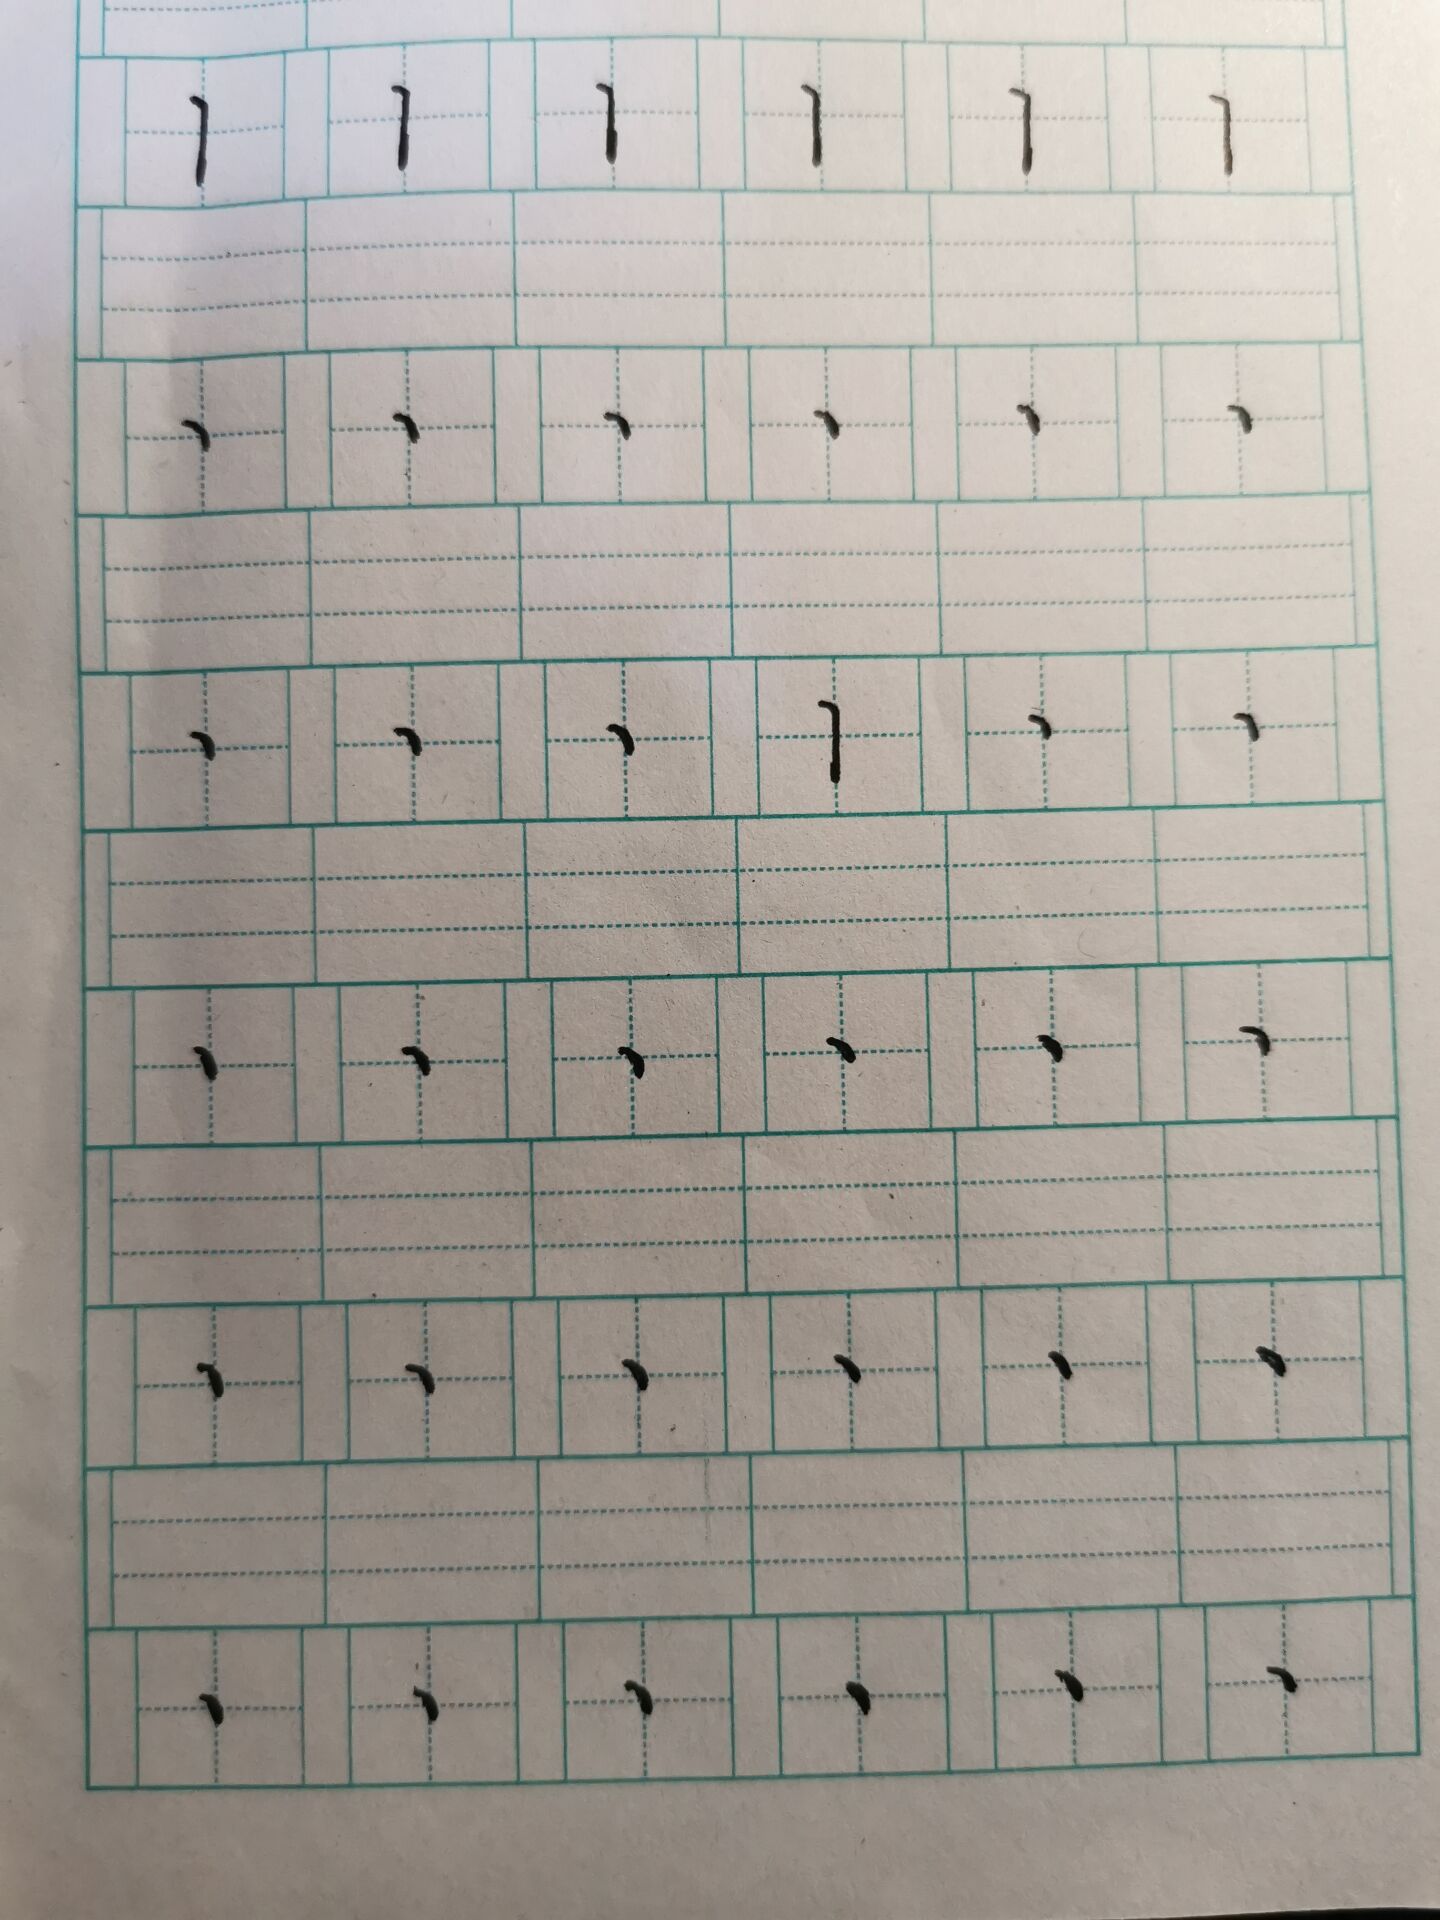 丨 丨 丨 丨 丨 丨
丶 丶 丶 丶 丶 丶
丶 丶 丶 丨 丶 丶
丶 丶 丶 丶 丶 丶
丶 丶 丶 丶 丶 丶
丶 丶 丶 丶 丶 丶